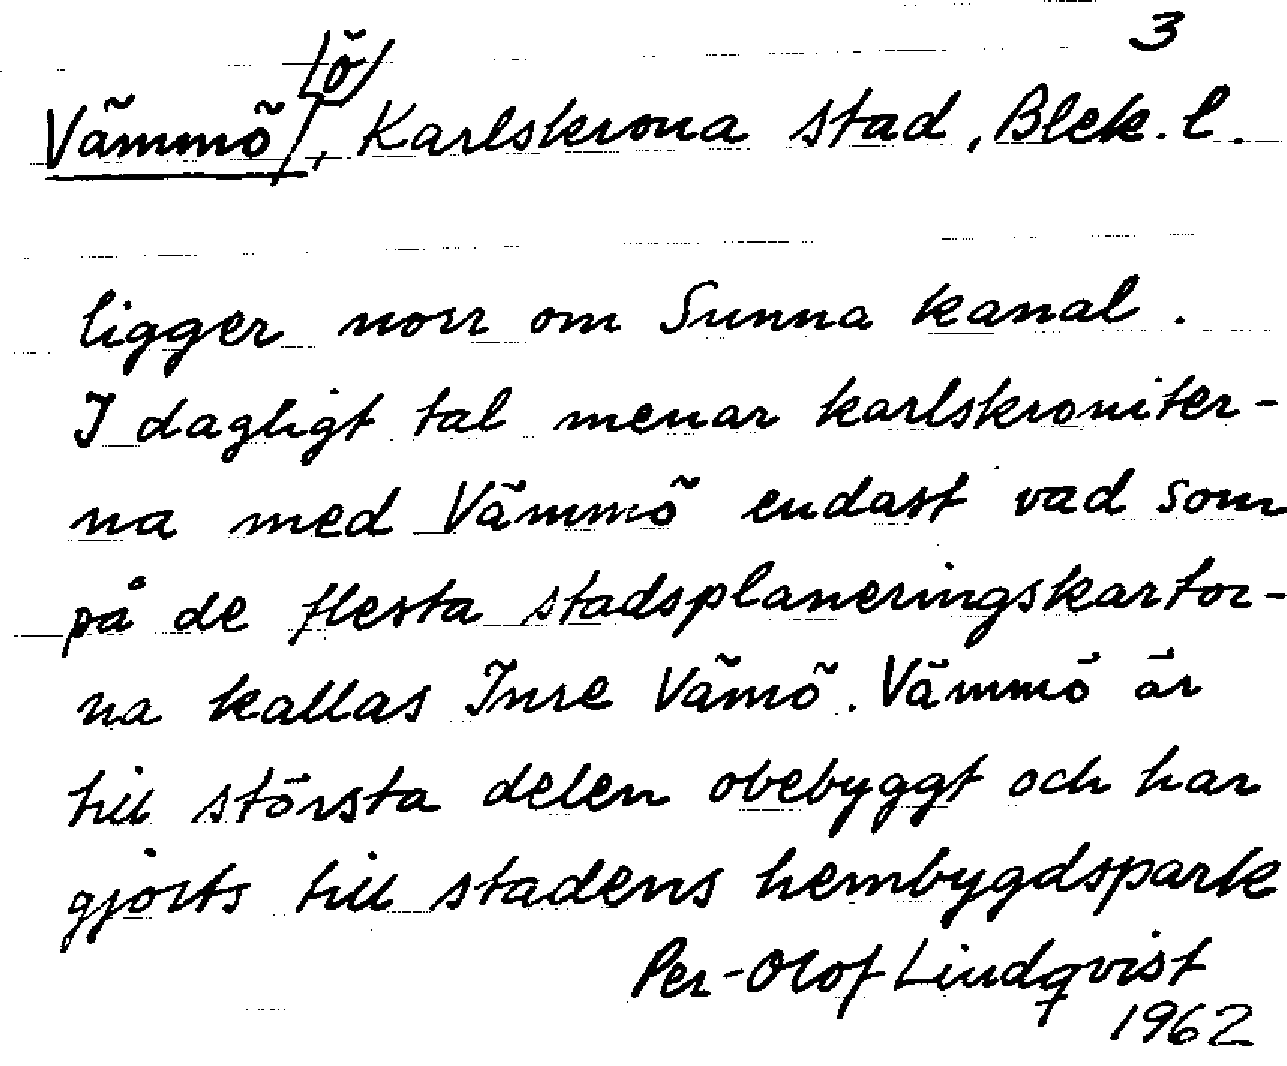 3
Vämmö [ö], Karlskrona stad, Blek. l.
ligger norr om Sunna kanal.
I dagligt tal menar karlskroniter-
na med Vämmö endast vad som
på de flesta stadsplaneringskartor-
na kallas Inre Vämö. Vämmö är
till största delen obebyggt och har
gjorts till stadens hembygdspark
Per-Olof Lindqvist
1962